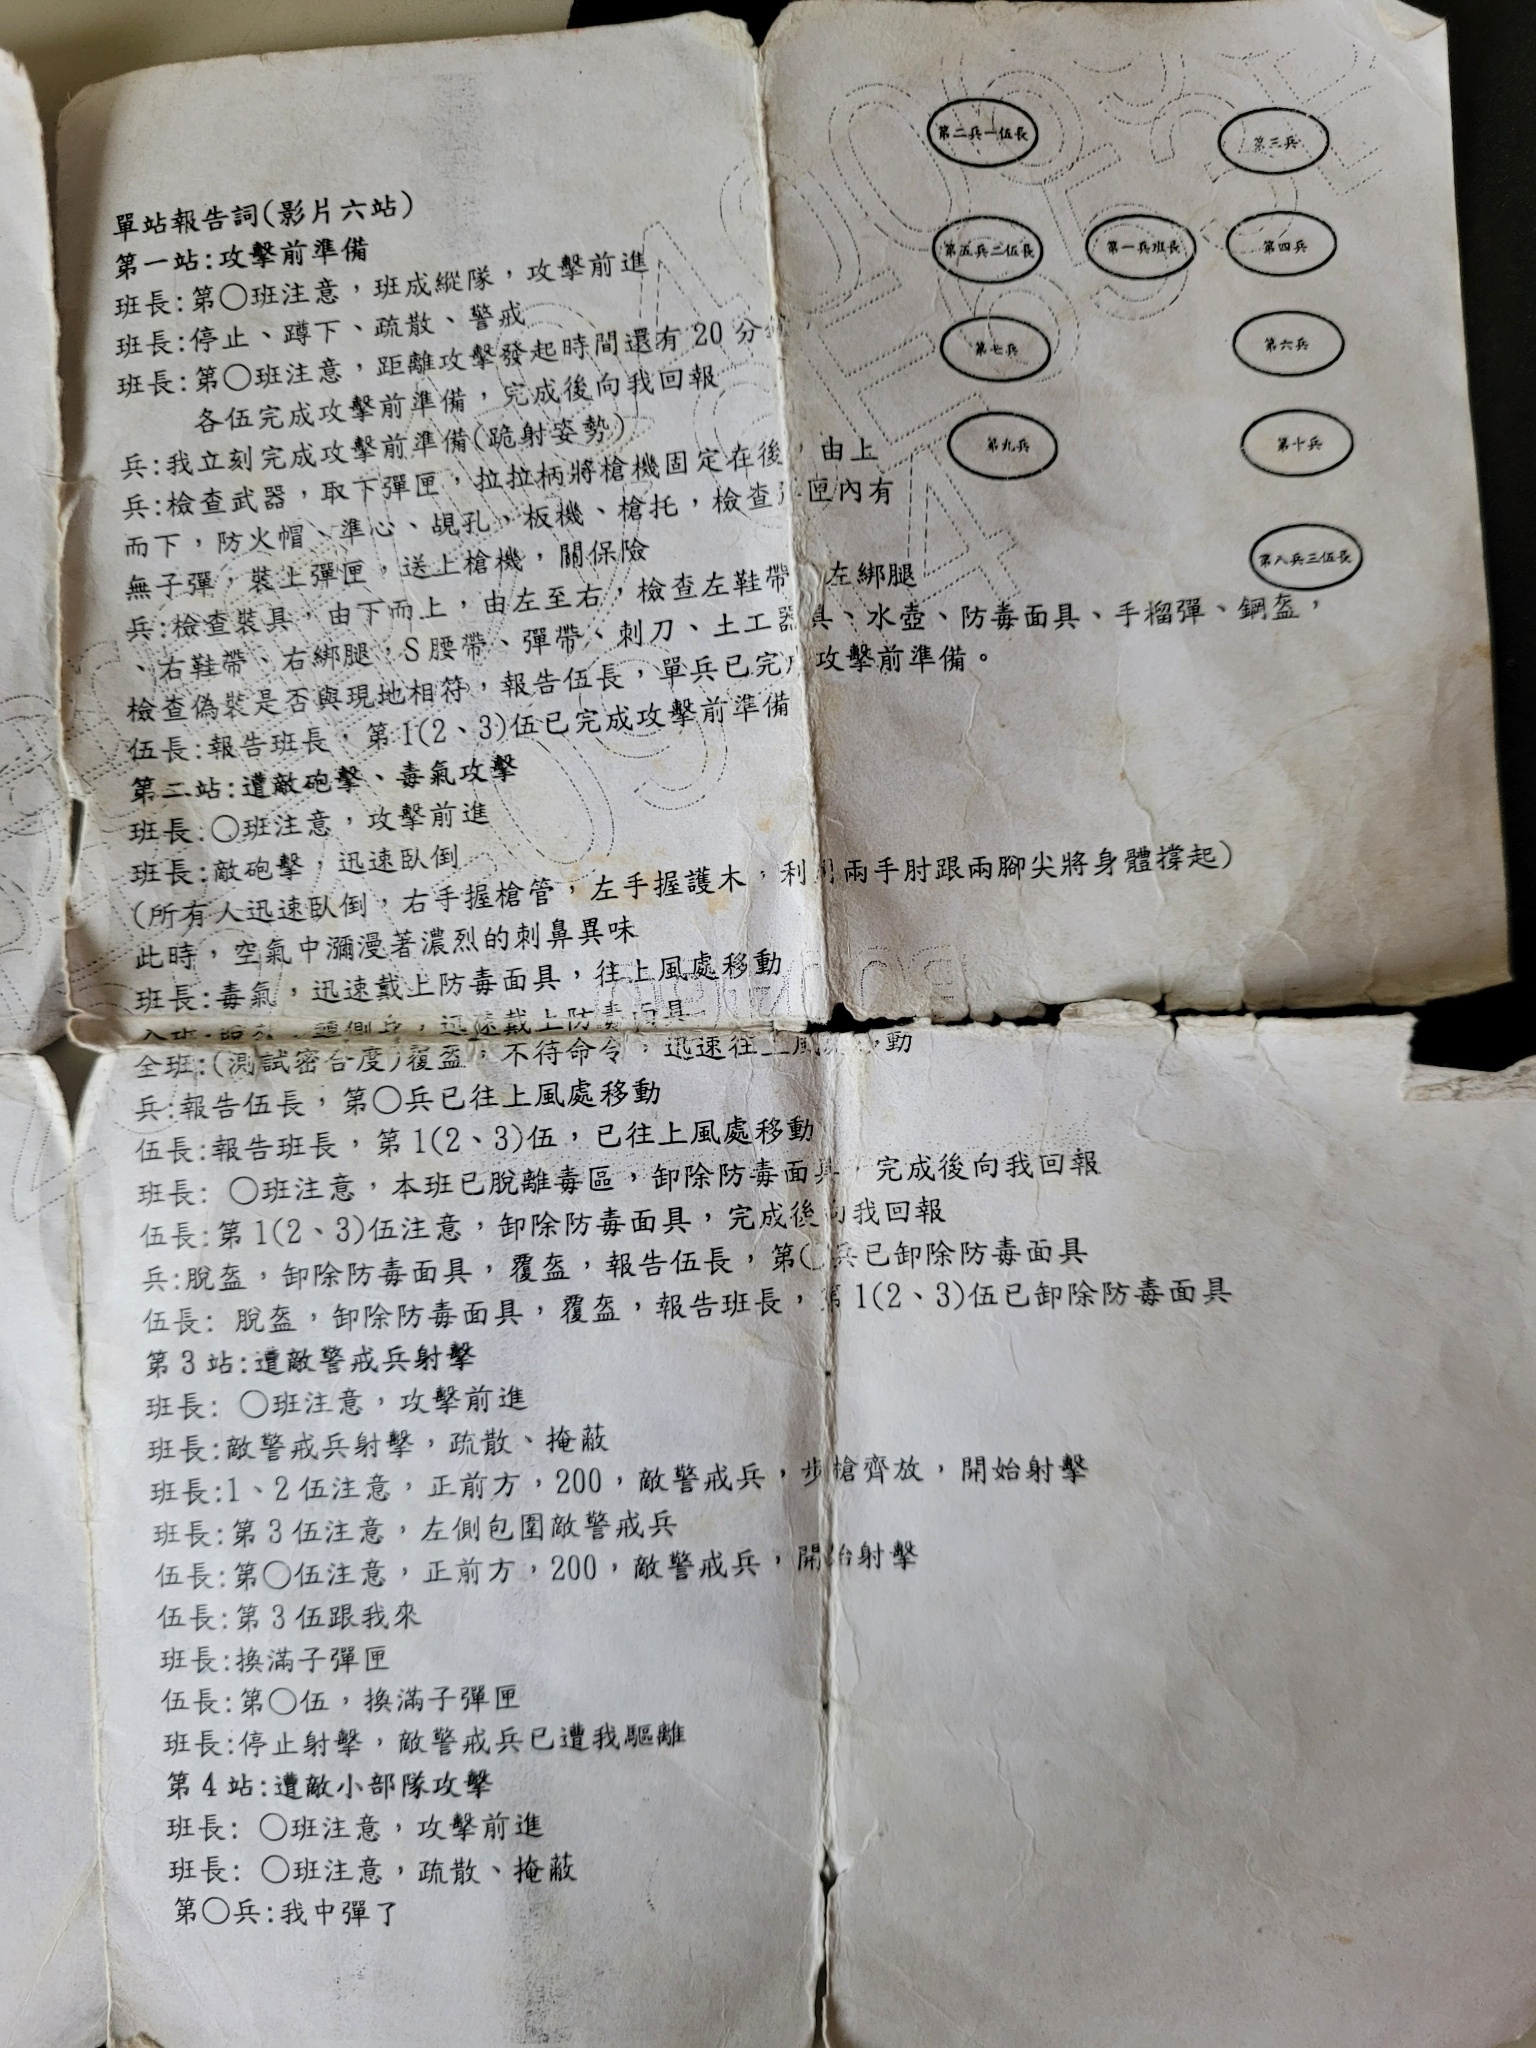 第二兵一伍長
第三兵
第五兵二伍長
第一兵班長
第四兵
第七兵
第六兵
第九兵
第十兵
第八兵三伍長
單站報告詞(影片六站)
第一站:攻擊前準備
班長:第〇班注意，班成縱隊，攻擊前進
班長:停止、蹲下、疏散、警戒
班長:第〇班注意，距離攻擊發起時間還有 20 分
各伍完成攻擊前準備，完成後向我回報
兵:我立刻完成攻擊前準備(跪射姿勢)
兵:檢查武器，取下彈匣，拉拉柄將槍機固定在後，由上
而下，防火帽、準心、覘孔、板機、槍托，檢查彈匣內有
無子彈，裝上彈匣，送上槍機，關保險
兵:檢查裝具，由下而上，由左至右，檢查左鞋帶、左綁腿
、右鞋帶、右綁腿，S 腰帶、彈帶、刺刀、土工器具、水壺、防毒面具、手榴彈、鋼盔，
檢查偽裝是否與現地相符，報告伍長，單兵已完成攻擊前準備。
伍長:報告班長，第 1(2、3)伍已完成攻擊前準備
第二站:遭敵砲擊、毒氣攻擊
班長:〇班注意，攻擊前進
班長:敵砲擊，迅速臥倒
(所有人迅速臥倒，右手握槍管，左手握護木，利用兩手肘跟兩腳尖將身體撐起)
此時，空氣中瀰漫著濃烈的刺鼻異味
班長:毒氣，迅速戴上防毒面具，往上風處移動
迅速戴上防毒面具
全班:(測試密合度)覆盔，不待命令，迅速往上風處移動
兵:報告伍長，第〇兵已往上風處移動
伍長:報告班長，第 1(2、3)伍，已往上風處移動
班長: 〇班注意，本班已脫離毒區，卸除防毒面具，完成後向我回報
伍長:第 1(2、3)伍注意，卸除防毒面具，完成後向我回報
兵:脫盔，卸除防毒面具，覆盔，報告伍長，第〇兵已卸除防毒面具
伍長: 脫盔，卸除防毒面具，覆盔，報告班長，第 1(2、3)伍已卸除防毒面具
第 3 站:遭敵警戒兵射擊
班長: 〇班注意，攻擊前進
班長:敵警戒兵射擊，疏散、掩蔽
班長:1、2 伍注意，正前方，200，敵警戒兵，步槍齊放，開始射擊
班長:第 3 伍注意，左側包圍敵警戒兵
伍長:第〇伍注意，正前方，200，敵警戒兵，開始射擊
伍長:第 3 伍跟我來
班長:換滿子彈匣
伍長:第〇伍，換滿子彈匣
班長:停止射擊，敵警戒兵已遭我驅離
第 4 站:遭敵小部隊攻擊
班長: 〇班注意，攻擊前進
班長: 〇班注意，疏散、掩蔽
第〇兵:我中彈了